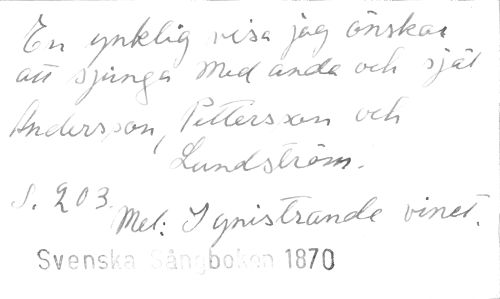 En ynklig visa jag önskar
att sjunga Med anda och själ
Andersson, Pettersson och
Lundström.
S. 203.
Mel: I gnistrande vinet.
Svenska Sångboken 1870